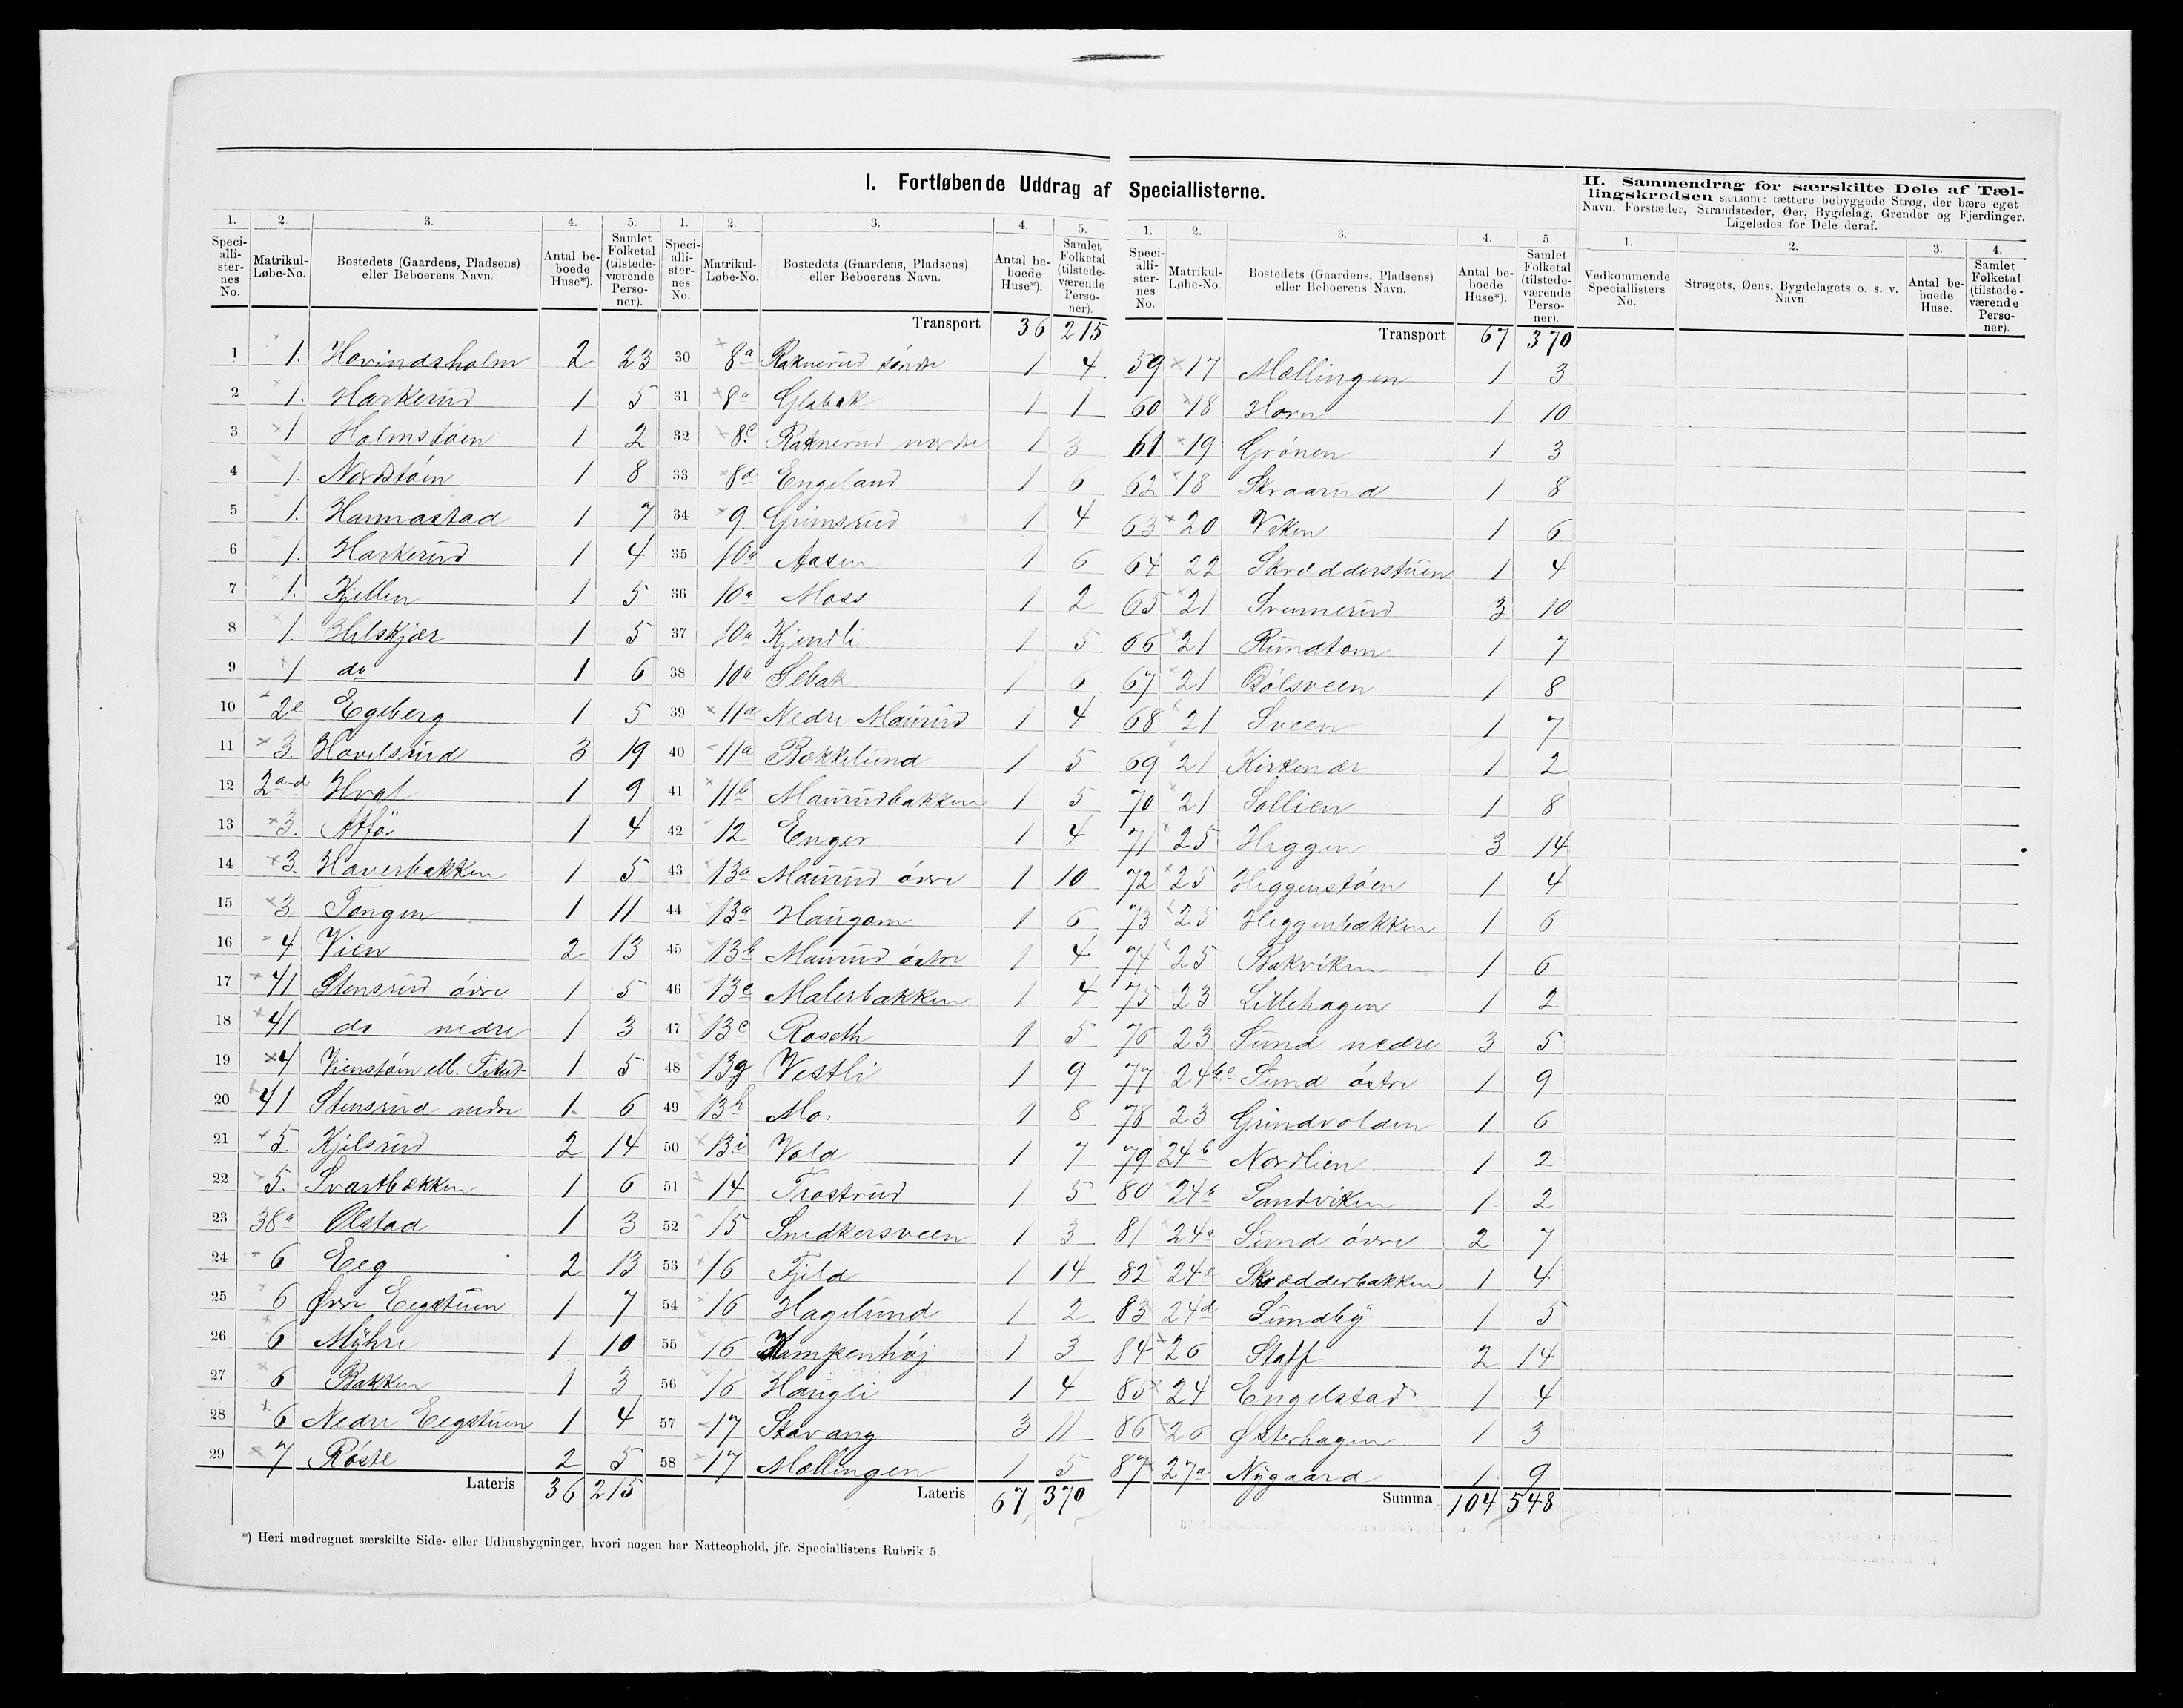 I. Fortløbende Uddrag af Speciallisterne.
II. Sammendrag for særskilte Dele af Tællingskredsen saasom: tættere bebyggede Strøg, der bære eget Navn, Forstæder, Strandsteder, Øer, Bygdelag, Grender og Fjerdinger. Ligeledes for Dele deraf.
1. 2. 3. 4. 5.
Speciallisternes No. Matrikul-Løbe-No. Bostedets (Gaardens, Pladsens) eller Beboerens Navn. Antal beboede Huse*). Samlet Folketal (tilstedeværende Personer).
1 1. Hovindsholm 2 23
2 1. Harkerud 1 5
3 1 Holmstøen 1 2
4 1. Nordstøen 1 8
5 1. Hannastad 1 7
6 1. Harkerud 1 4
7 1. Kjellen 1 5
8 1 Helskjær 1 5
9 1 do 1 6
10 2e Egeberg 1 5
11 3. Hovelsrud 3 19
12 2a-d Hval 1 9
13 3. Atfør 1 4
14 3. Haverbakken 1 5
15 3 Tangen 1 11
16 4 Vien 2 13
17 41 Stensrud øvre 1 5
18 41 do nedre 1 3
19 4 Vienstøen ell. 1 5
20 41 Stensrud nedre 1 6
21 5. Kjelsrud 2 14
22 5. Svartbækken 1 6
23 38a Olstad 1 3
24 6 Eeg 2 13
25 6 Øvre Eegstuen 1 7
26 6 Myhre 1 10
27 6 Bakken 1 3
28 6 Nedre Eegstuen 1 4
29 7 Røste 2 5
Lateris 36 215
*) Heri medregnet særskilte Side- eller Udhusbygninger, hvori nogen har Natteophold, jfr. Speciallistens Rubrik 5.
1. 2. 3. 4. 5.
Speciallisternes No. Matrikul-Løbe-No. Bostedets (Gaardens, Pladsens) eller Beboerens Navn. Antal beboede Huse*). Samlet Folketal (tilstedeværende Personer).
Transport 36 215
30 8a Raknerud søndre 1 4
31 8a Glabak 1 1
32 8c Raknerud nordre 1 3
33 8d Engeland 1 6
34 9. Grimsrud 1 4
35 10a Aasen 1 6
36 10a Moss 1 2
37 10a Kjendli 1 5
38 10b Sebak 1 6
39 11a Nedre Maurud 1 4
40 11a Bækkelund 1 5
41 11b Maurudbakken 1 5
42 12 Enger 1 4
43 13a Maurud øvre 1 10
44 13a Haugom 1 6
45 13b Maurud østre 1 4
46 13e Malerbakken 1 4
47 13c Roseth 1 5
48 13g Vestli 1 9
49 13h Mo 1 8
50 13i Vold 1 7
51 14 Trostrud 1 5
52 15 Snedkersveen 1 3
53 16 Fjeld 1 14
54 16 Hagelund 1 2
55 16 Kampenhøj 1 3
56 16 Haugli 1 4
57 17 Stavang 3 11
58 17 Mællingen 1 5
Lateris 67 370
1. 2. 3. 4. 5.
Speciallisternes No. Matrikul-Løbe-No. Bostedets (Gaardens, Pladsens) eller Beboerens Navn. Antal beboede Huse*). Samlet Folketal (tilstedeværende Personer).
Transport 67 370
59 17 Mællingen 1 3
60 18 Horn 1 10
61 19 Grønen 1 3
62 18 Skraarud 1 8
63 20 Viken 1 6
64 22 Skrædderstuen 1 4
65 21 Svennerud 3 10
66 21 Rundtom 1 7
67 21 Bølsveen 1 8
68 21 Sveen 1 7
69 21 Kirkenær 1 2
70 21 Sollien 1 8
71 25 Heggen 3 14
72 25 Heggenstøen 1 4
73 25 Heggenbakken 1 6
74 25 Bakviken 1 6
75 23 Lillehagen 1 2
76 23 Sund nedre 3 5
77 24bc Sund østre 1 9
78 23 Grindvolden 1 6
79 24b Nordlien 1 2
80 24b Sandviken 1 2
81 24a Sund øvre 2 7
82 24a Skrædderbakken 1 4
83 24d Sundby 1 5
84 26 Staff 2 14
85 24 Engelstad 1 4
86 26 Østerhagen 1 3
87 27a Nygaard 1 9
Summa 104 548
1. 2. 3. 4.
Vedkommende Speciallisters No. Strøgets, Øens, Bygdelagets o. s. v. Navn. Antal beboede Huse. Samlet Folketal (tilstedeværende Personer).